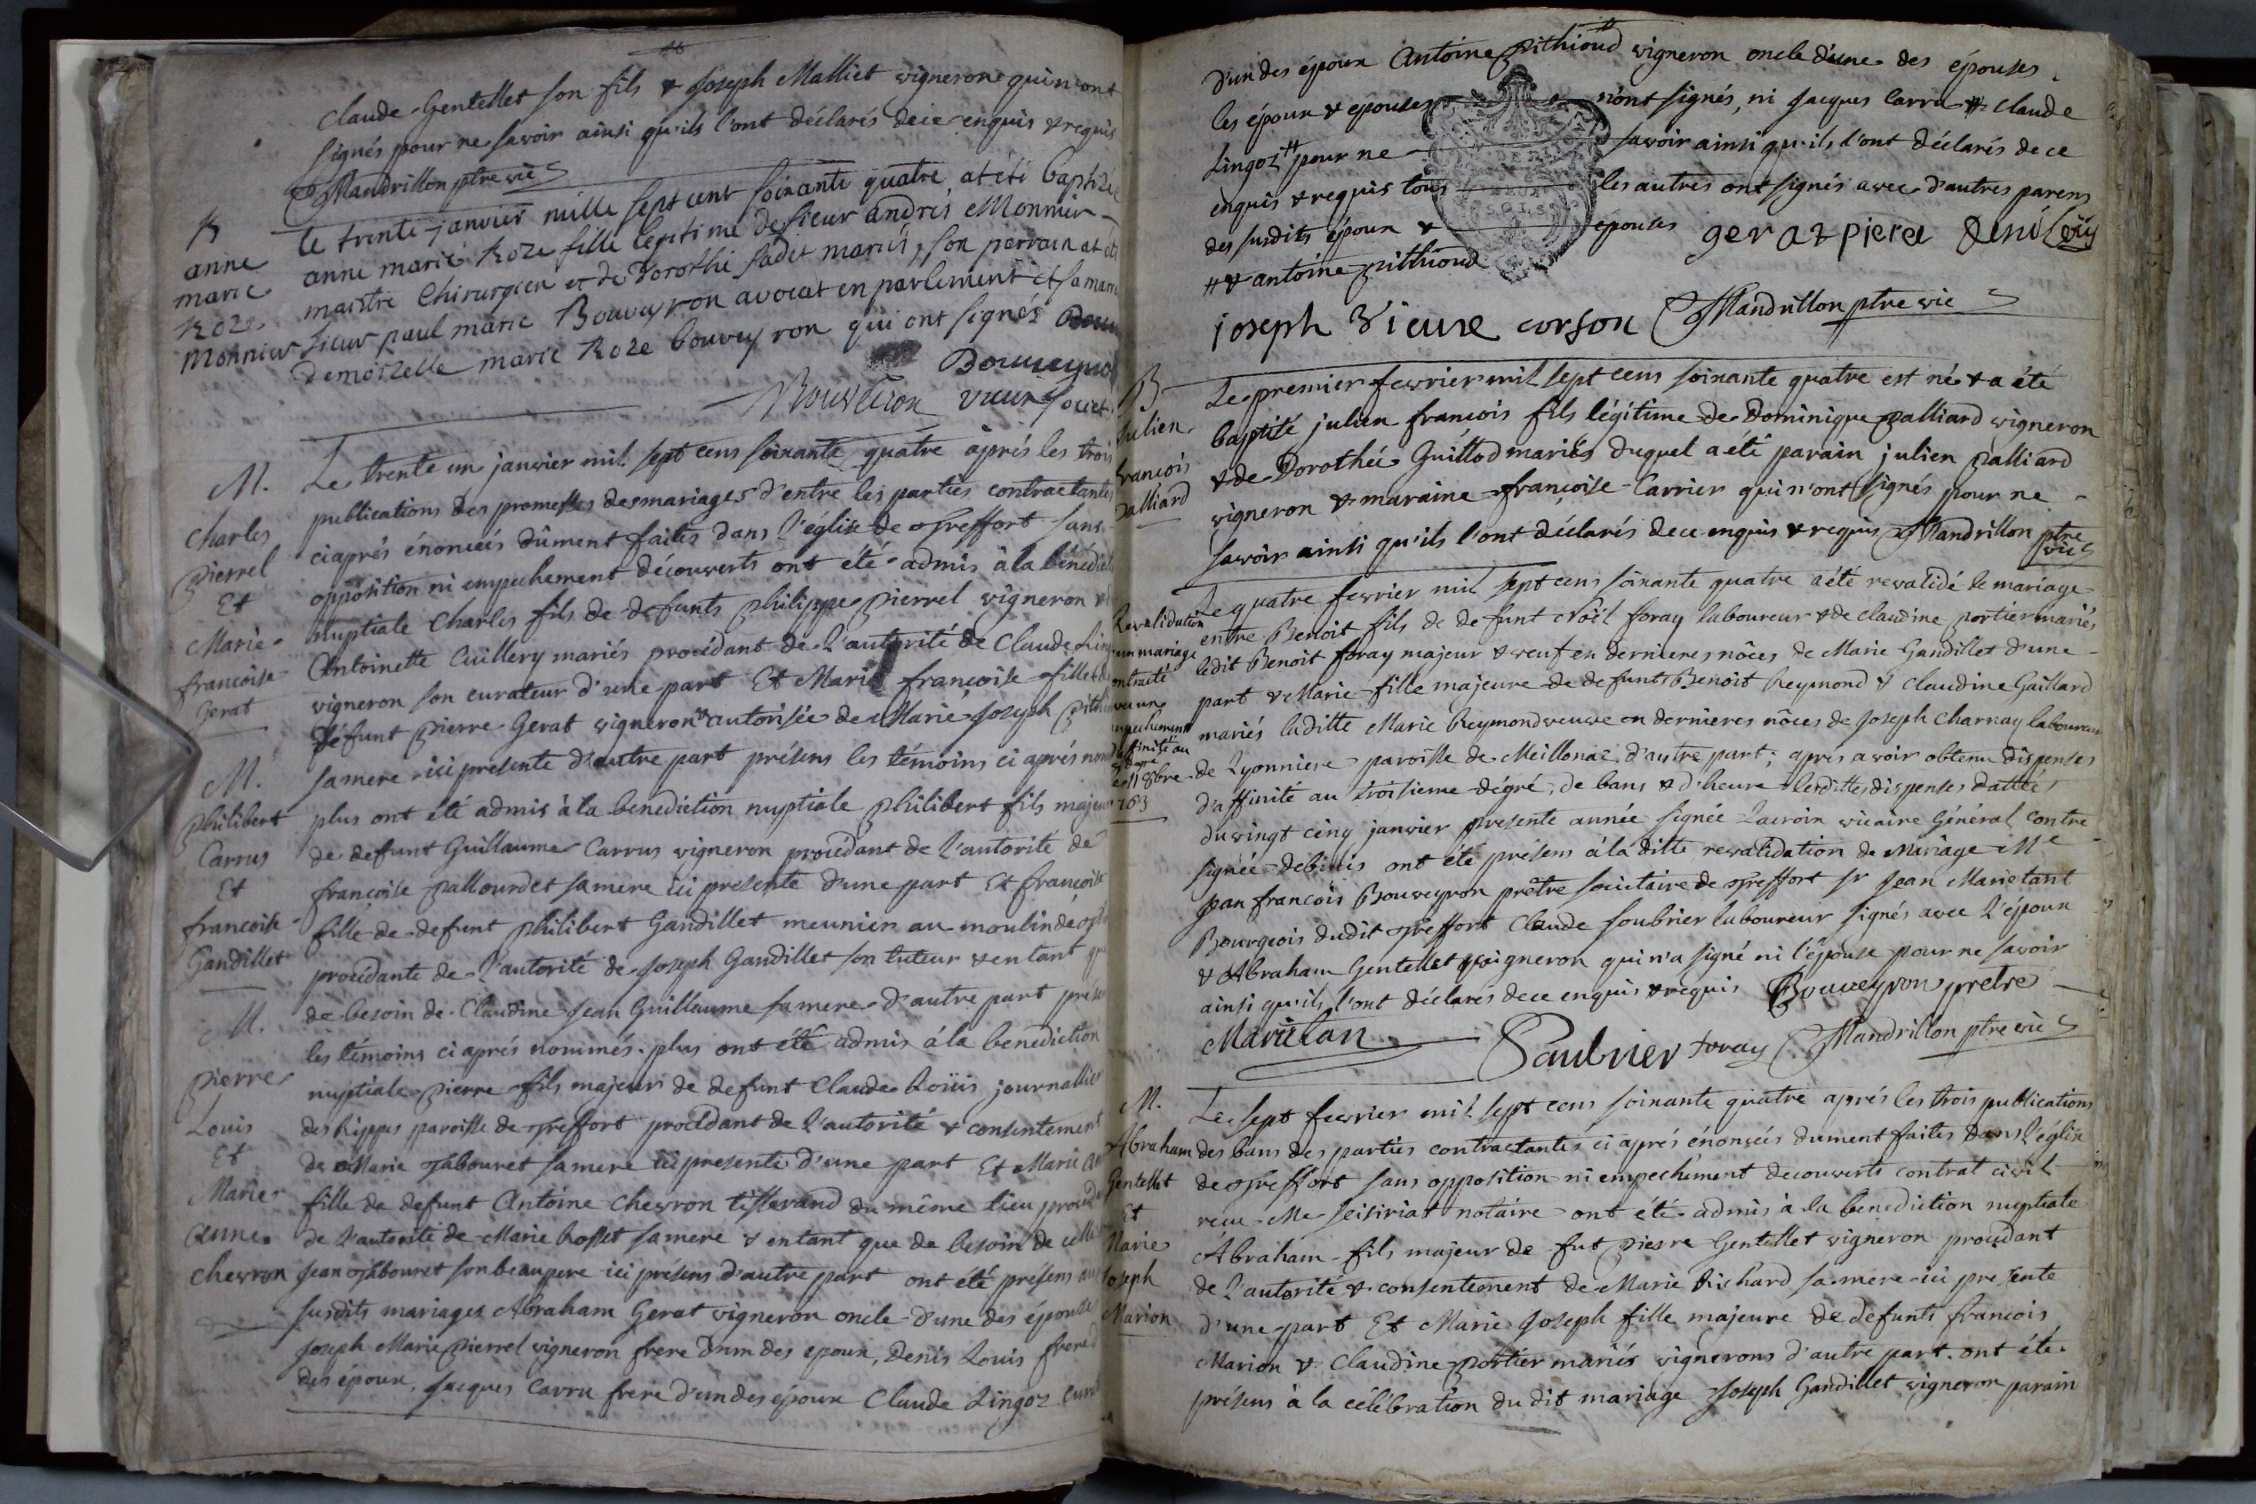 Claude Gentellet son fils & Joseph Malliet vigneron qui n'ont
signés pour ne savoir ainsi qu'ils l'ont déclarés de ce enquis & requis
Mandrillon ptre vic
B
anne
marie
Roze
Monnier
le trente janvier mille sept cent soixante quatre at été baptizé
anne marie Roze fille legitime de sieur andres Monnier
maistre Chirurgien et de Dorothé sadet mariés, son parrain at été
sieur paul marie Bouveyron avocat en parlement et sa marr
demoizelle marie Roze bouveyron qui ont signés
Bouveyron
Bouveiron
M.
Charles
Pierrel
Et
Marie
francoise
Gerat
Le trente un janvier mil sept cens soixante quatre aprés les trois
publications des promesses de mariages d'entre les parties contractantes
ci aprés énoncés dûment faites dans l'église de Treffort sans
opposition ni empechement découverts ont été admis à la bénédict
nuptiale Charles fils de defunts Philippe Pierrel vigneron &
Antoinette Cuillery mariés procédant de l'autorité de Claude Lin
vigneron son curateur d'une part Et Marie françoise fille de
défunt Pierre Gerat vigneron & autorisée de Marie Joseph Pithi
sa mere ici presente d'autre part présens les témoins ci aprés nom
M.
Philibert
Carrus
Et
francoise
Gandillet
plus ont été admis à la benediction nuptiale Philibert fils majeur
de defunt Guillaume Carrus vigneron procédant de l'autorité de
françoise Pallourdet sa mere ici presente d'une part Et françoise
fille de defunt Philibert Gandillet meunier au moulin de
procédante de l'autorité de Joseph Gandillet son tuteur & entant qu
de besoin de Claudine Jean Guillaume sa mere d'autre part prése
M.
Pierre
Louis
Et
Marie
Anne
Chevron
les témoins ci aprés nommés. plus ont été admis à la benediction
nuptiale Pierre fils majeur de defunt Claude Loüis journallier
des Rippes paroisse de Treffort procédant de l'autorité & consentement
de Marie Tabouret sa mere ici presente d'une part Et Marie An
fille de defunt Antoine Chevron tisserand du même lieu procéd
de l'autorité de Marie Rosset sa mere & entant que de besoin de celle
Jean Tabouret son beaupere ici présens d'autre part ont été présens aux
susdits mariages Abraham Gerat vigneron oncle d'une des épouse
Joseph Marie Pierrel vigneron frere d'un des epoux, Denis Louis frere d
des époux, Jacques Carru frere d'un des époux Claude Lingoz cura
d'un des époux Antoine Pithioud vigneron oncle d'une des épouses.
les époux & epouses n'ont signés, ni Jacques Carru # Claude
Lingoz # pour ne savoir ainsi qu'ils l'ont déclarés de ce
enquis & requis tous les autres ont signés avec d'autres parens
des susdits époux & epouses gerat piere Denis Loüis
# & antoine pithioud
joseph vieux corson Mandrillon ptre vic
B
Julien
françois
Palliard
Le premier fevrier mil sept cens soixante quatre est né & a été
baptisé julien françois fils légitime de Dominique Palliard vigneron
& de Dorothée Guillod mariés duquel a été parain julien Palliard
vigneron & maraine françoise Carrier qui n'ont signés pour ne
savoir ainsi qu'ils l'ont déclarés de ce enquis & requis Mandrillon ptre
vic
Revalidation
un mariage
ontracté
avec un
empechement
d'affinité au
Le quatre fevrier mil sept cens soixante quatre a été revalidé le mariage
entre Benoit fils de defunt Noël foray laboureur & de Claudine Portier mariés
ledit Benoit foray majeur & veuf en dernieres nôces de Marie Gandillet d'une
part & Marie fille majeure de defunts Benoit Reymond & Claudine Gaillard
mariés laditte Marie Reymond veuve en dernieres nôces de Joseph Charnay laboureur
de Lyonniere paroisse de Meillonaz d'autre part; aprés avoir obtenu dispenses
d'affinité au troisieme dégré, de bans & d'heure lesdittes dispenses dattées
du vingt cinq janvier presente année signée Lacroix vicaire Général contre
signée debinis ont été présens à la ditte revalidation de mariage Me
jean françois Bouveyron prêtre sociétaire de Treffort sr Jean Marie tant
Bourgeois dudit Treffort Claude Soubrier laboureur signés avec l'époux
& Abraham Gentellet vigneron qui n'a signé ni l'épouse pour ne savoir
ainsi qu'ils l'ont déclarés de ce enquis & requis Bouveyron pretre
Marietan Saubrier foray Mandrillon ptre vic
M.
Abraham
Gentellet
Et
Marie
Joseph
Marion
Le sept fevrier mil sept cens soixante quatre aprés les trois publications
des bans des parties contractantes ci aprés énoncés dument faites dans l'église
de Treffort sans opposition ni empechement decouverts contrat civil
recu Me seisiriat notaire ont été admis à la benediction nuptiale
Abraham fils majeur de fut Pierre Gentellet vigneron procédant
de l'autorité & consentement de Marie Richard sa mere ici presente
d'une part Et Marie Joseph fille majeure de defunts francois
Marion & Claudine Portier mariés vignerons d'autre part. ont été
présens à la célébration du dit mariage Joseph Gandillet vigneron parain